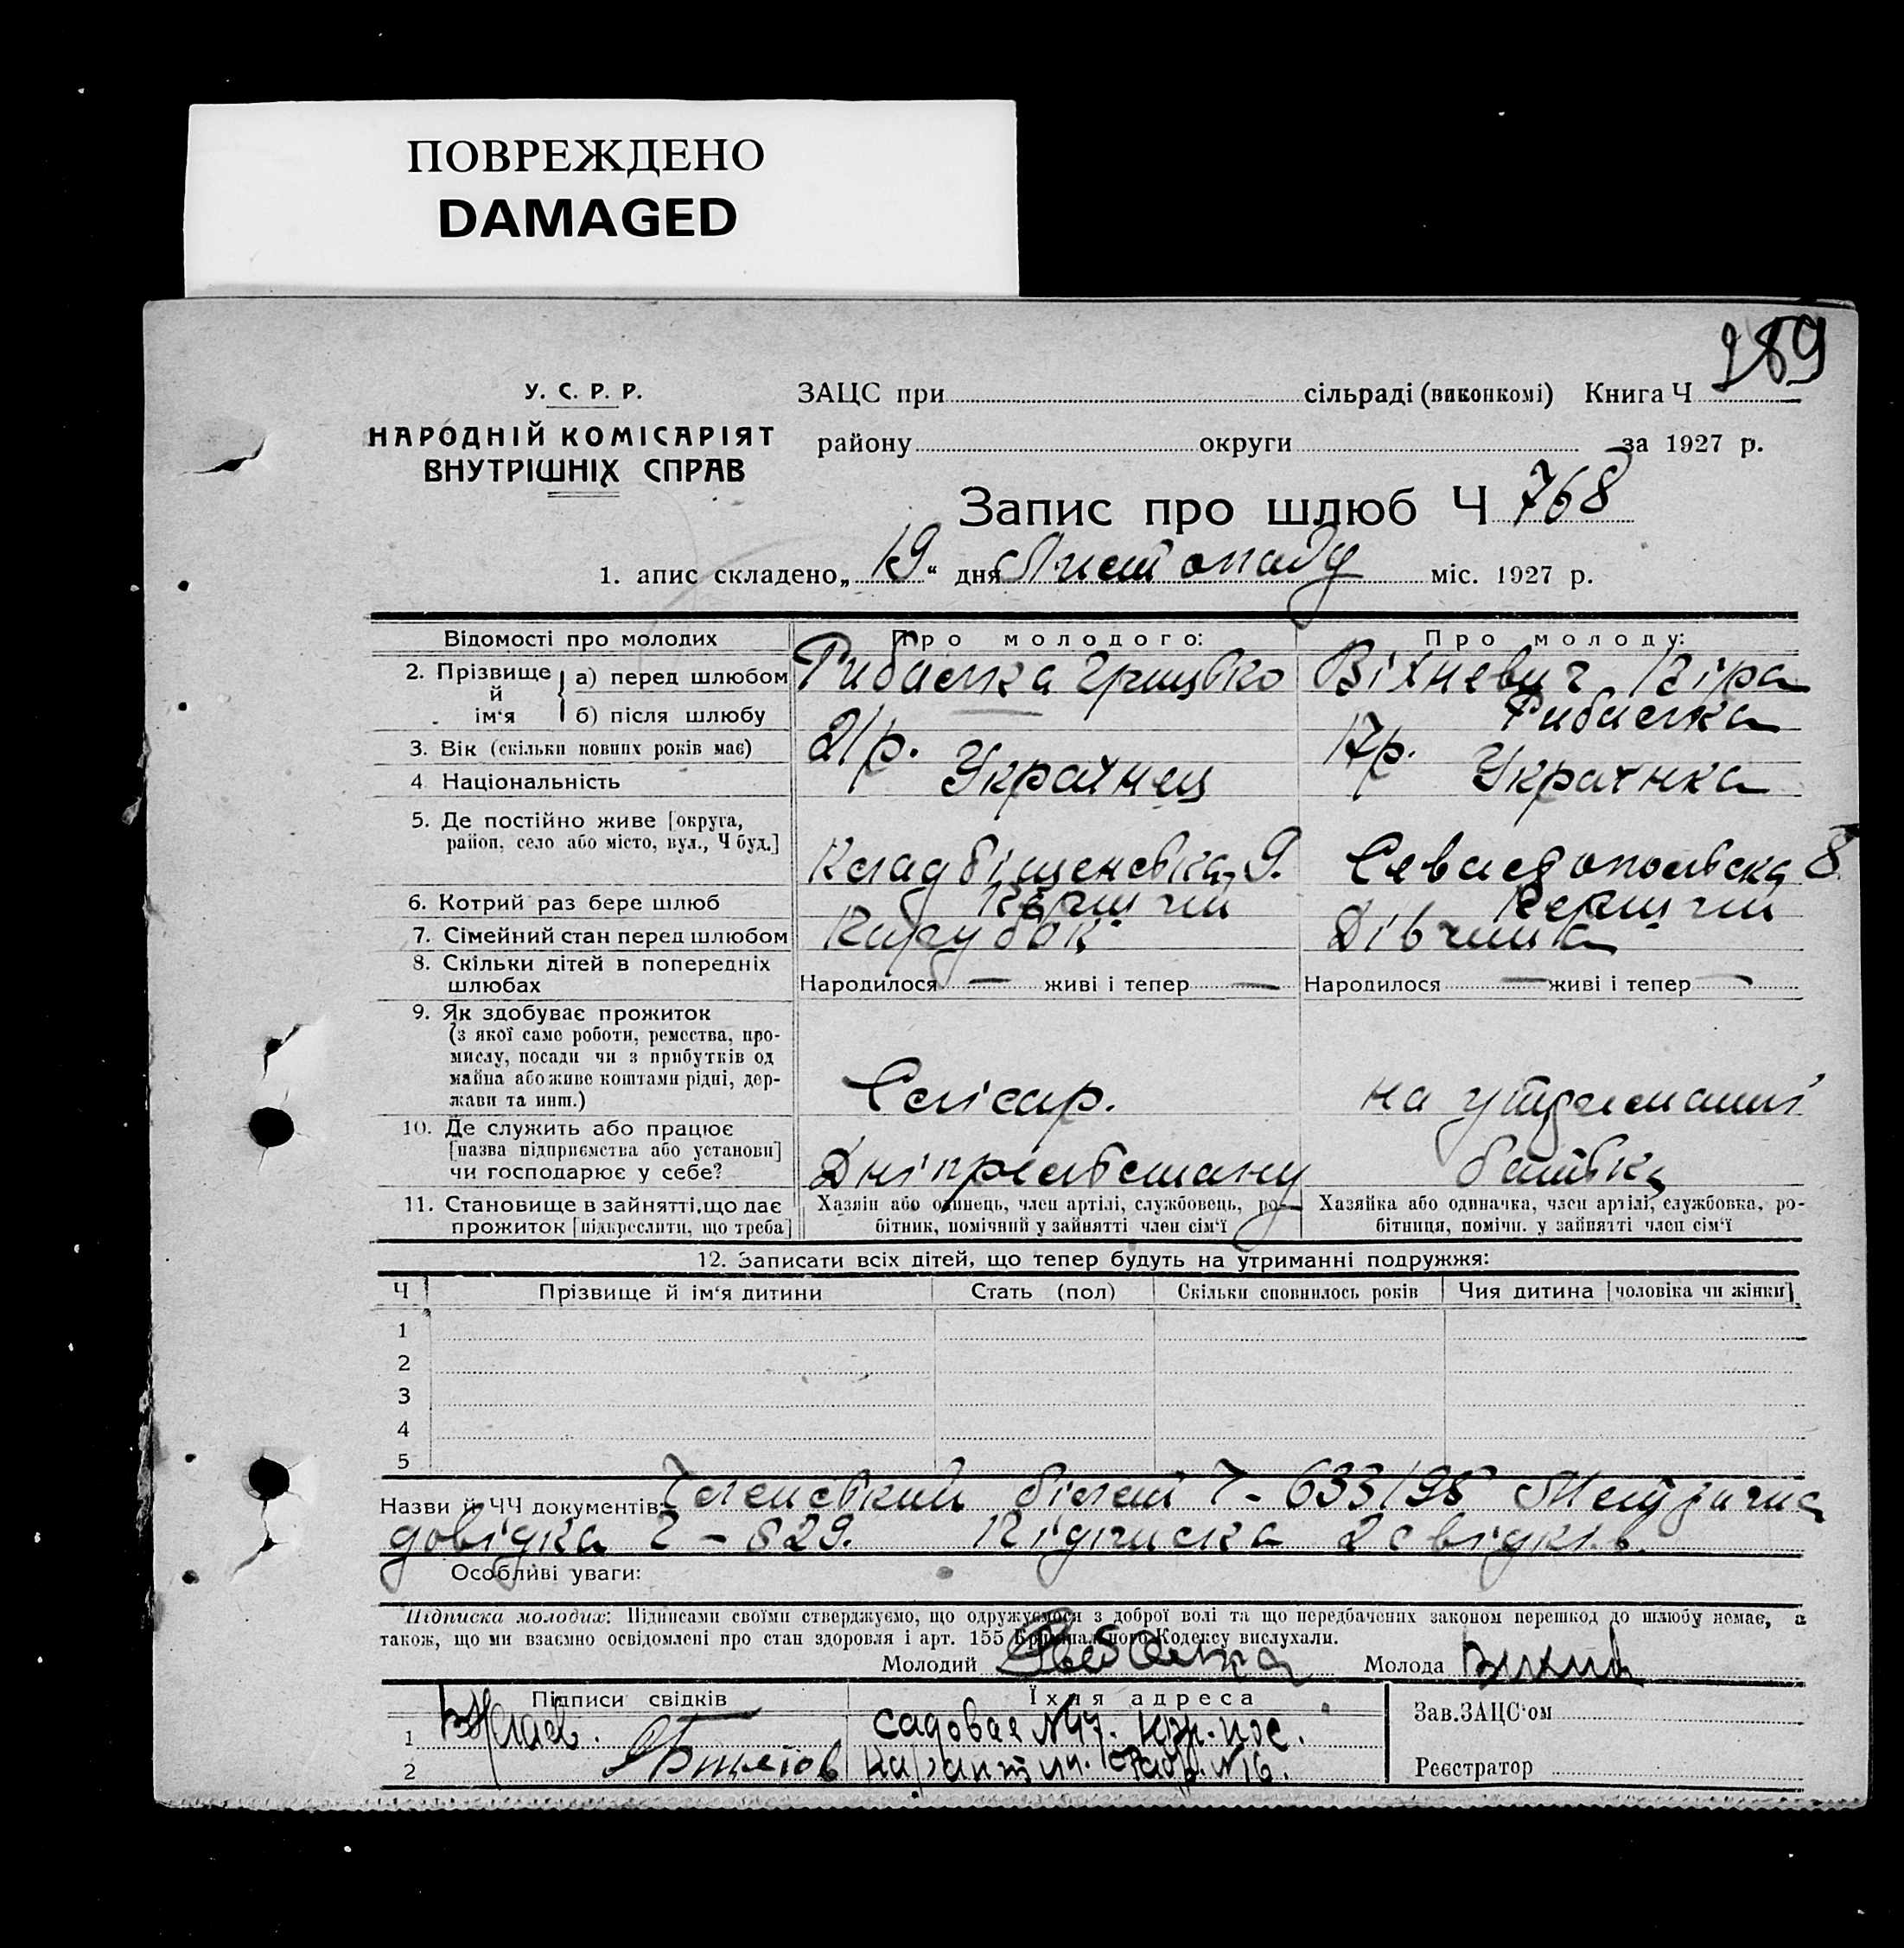 ПОВРЕЖДЕНО
DAMAGED
289
У. С. Р. Р.
НАРОДНІЙ КОМІСАРІЯТ
ВНУТРІШНІХ СПРАВ
ЗАЦС при сільраді (виконкомі) Книга Ч
району округи за 1927 р.
Запис про шлюб Ч 768
1. апис складено „19“ дня Листопаду міс. 1927 р.
Відомості про молодих Про молодого: Про молоду:
2. Прізвище й ім‘я а) перед шлюбом Рибалка Грицько Віхневич Кіра
б) після шлюбу Рибалка
3. Вік (скільки повних років має) 21 р. 17 р.
4 Національність Українец Українка
5. Де постійно живе [округа,
район, село або місто, вул., Ч буд.] Кладбіщенська, 9. Севастопольська 8
6. Котрий раз бере шлюб Перший Перший
7. Сімейний стан перед шлюбом Парубок Дівчина
8. Скільки дітей в попередніх
шлюбах Народилося — живі і тепер — Народилося — живі і тепер —
9. Як здобуває прожиток
(з якої саме роботи, ремества, про-
мислу, посади чи з прибутків од
майна або живе коштами рідні, дер-
жави та инш.) Слісар. на утриманні
10. Де служить або працює
[назва підприємства або установи]
чи господарює у себе? батька
11. Становище в зайнятті, що дає
прожиток [підкреслити, що треба]
Хазяїн або одинець, член артілі, службовець, ро-
бітник, помічний у зайнятті член сім‘ї
Хазяйка або одиначка, член артілі, службовка, ро-
бітниця, помічн. у зайнятті член сім‘ї
12. Записати всіх дітей, що тепер будуть на утриманні подружжя:
Ч Прізвище й ім‘я дитини Стать (пол) Скільки сповнилось років Чия дитина [чоловіка чи жінки]
1
2
3
4
5
Назви й ЧЧ документів: Членський білет Ч - 633/98 Метрична
довідка Ч - 829. Підписка 2 свідків.
Особливі уваги:
Підписка молодих: Підписами своїми стверджуємо, що одружуємося з доброї волі та що передбачених законом перешкод до шлюбу немає, а
також, що ми взаємно освідомлені про стан здоровля і арт. 155 Кримінального Кодексу вислухали.
Молодий Рибалка Молода
Підписи свідків Їхня адреса Зав. ЗАЦС‘ом
1 Садовая №47.
2 №16. Реєстратор